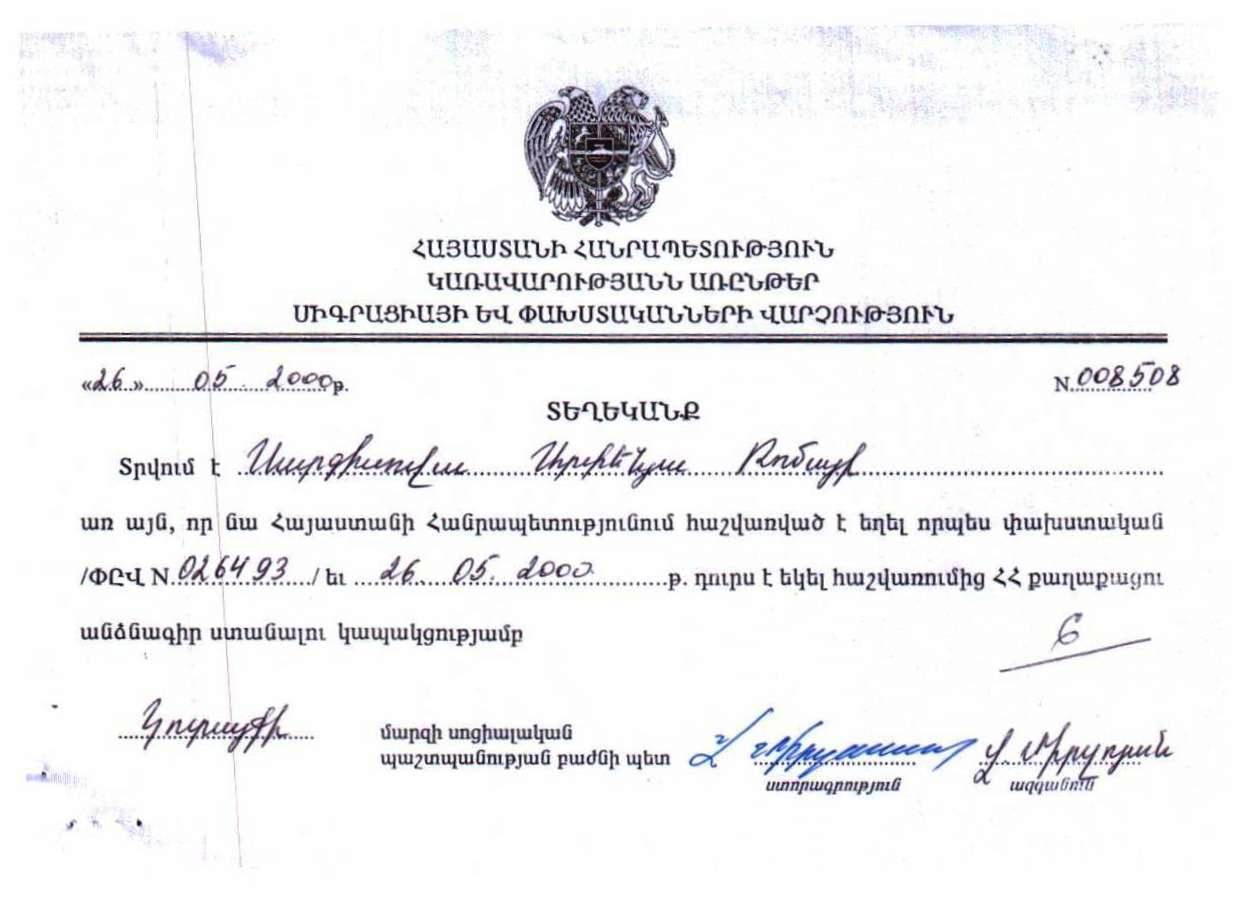 ՀԱՅԱՍՏԱՆԻ ՀԱՆՐԱՊԵՏՈՒԹՅՈՒՆ
ԿԱՌԱՎԱՐՈՒԹՅԱՆՆ ԱՌԸՆԹԵՐ
ՄԻԳՐԱՑԻԱՅԻ ԵՎ ՓԱԽՍՏԱԿԱՆՆԵՐԻ ՎԱՐՉՈՒԹՅՈՒՆ
«26» 05. 2000թ. N 008508
ՏԵՂԵԿԱՆՔ
Տրվում է Սարգիսովա Ռոմայի
առ այն, որ նա Հայաստանի Հանրապետությունում հաշվառված է եղել որպես փախստական
/ՓԸՎ N 026493 / եւ 26. 05. 2000 թ. դուրս է եկել հաշվառումից ՀՀ քաղաքացու
անձնագիր ստանալու կապակցությամբ
6
Կոտայքի մարզի սոցիալական
պաշտպանության բաժնի պետ
ստորագրություն ազգանուն